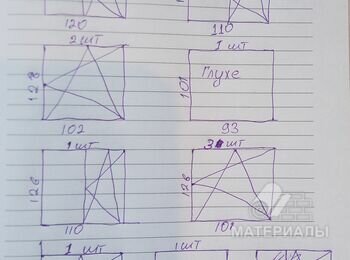 120
110
2 шт
1 шт
128
101
Глухе
102
93
1 шт
3 шт
126
126
110
101
МАТЕРИАЛЫ
1 шт
1 шт